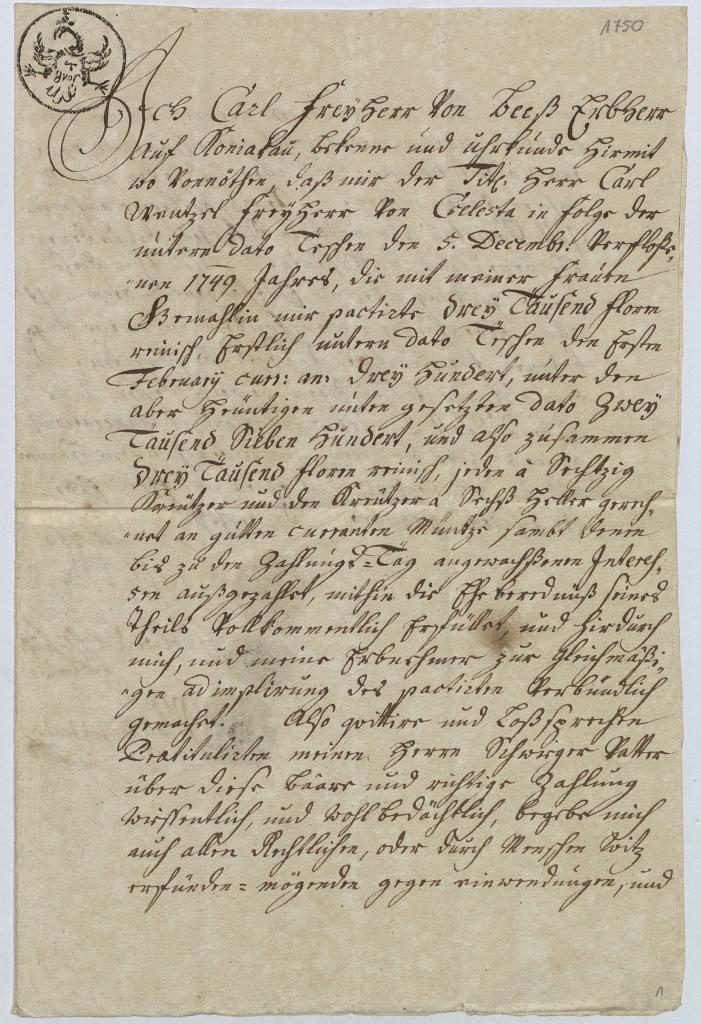 1750
Ich Carl Freyherr von Beeß Erbherr
auf Koniakau, bekenne und uhrkunde hirmit
wo vonnöthen, daß mir der Titl. Herr Carl
Wentzel Freyherr von Celesta in folge der
untern dato Teschen den 5. Decemb: verfloße-
nen 1749. Jahres, die mit meiner frauen
Gemahlin mir pactirte drey Tausend floren
reinisch, Erstlich untern dato Teschen den Ersten
February curr: an: drey Hundert, unter den
aber heuntigen unten gesetzten dato Zwey
Tausend Sieben Hundert, und also zusammen
drey Tausend floren reinisch, jeden à Sechtzig
Kreutzer und den Kreutzer a Sechß Heller gerech-
net an gutten curranten Müntze sambt denen
bis zu den Zahlungs-Tag angewachßenen Interes-
sen außgezahlet, mithin die Eheberednuß seines
Theils vollkommentlich Erfüllet, und hirdurch
mich, und meine Erbnehmer zur gleichmäßi-
gen adimplirung des pactirten verbündlich
gemachet. Also quittire und Loßsprechen
Praetitulirten meinen Herrn Schwiger Vatter
über diese baare und richtige Zahlung
wissentlich, und wohlbedächtlich, begebe mich
auch allen Rechtlichen, oder durch Menschen Witz
erfunden-mögenden gegen einwendungen, und
1